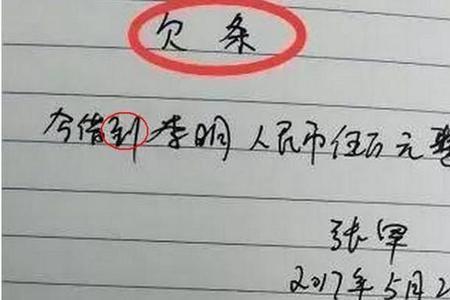 欠条
今借到李明人民币伍百元整
张军
2017年5月2